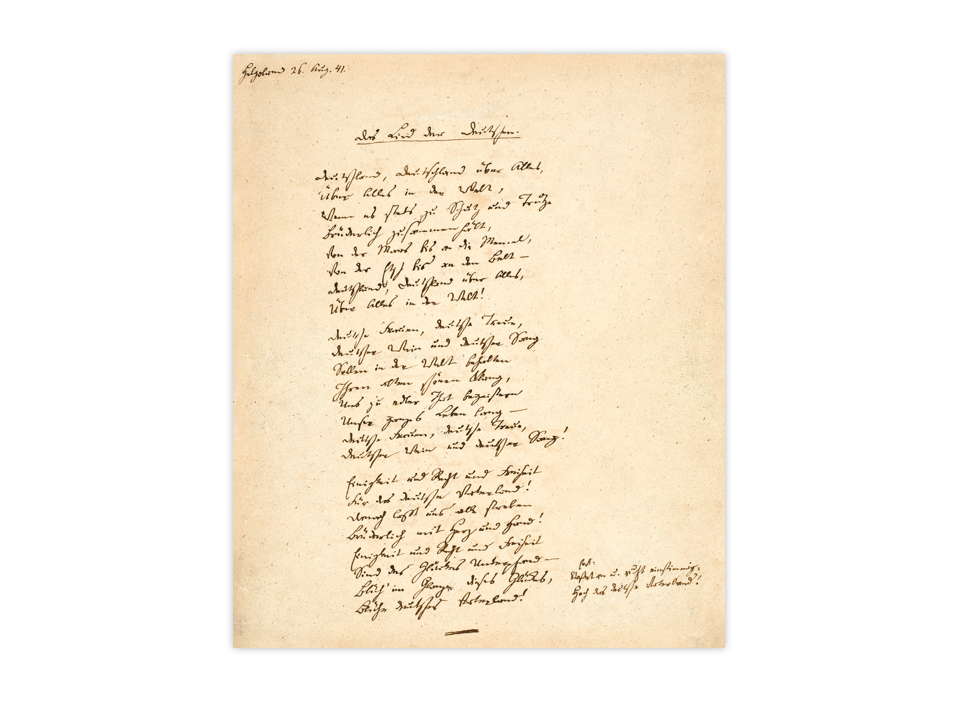 Helgoland 26. Aug. 41.
Das Lied der Deutschen.
Deutschland, Deutschland über Alles,
Über Alles in der Welt,
Wenn es stets zu Schutz und Trutze
Brüderlich zusammenhält,
Von der Maas bis an die Memel,
Von der Etsch bis an den Belt –
Deutschland, Deutschland über Alles,
Über Alles in der Welt!
Deutsche Frauen, deutsche Treue,
Deutscher Wein und deutscher Sang
Sollen in der Welt behalten
Ihren alten schönen Klang,
Uns zu edler That begeistern
Unser ganzes Leben lang –
Deutsche Frauen, deutsche Treue,
Deutscher Wein und deutscher Sang!
Einigkeit und Recht und Freiheit
Für das deutsche Vaterland!
Danach laßt uns alle streben
Brüderlich mit Herz und Hand!
Einigkeit und Recht und Freiheit
Sind des Glückes Unterpfand –
Blüh' im Glanze dieses Glückes,
Blühe deutsches Vaterland!
Stoßet an u. ruft einstimmig:
Hoch das deutsche Vaterland!